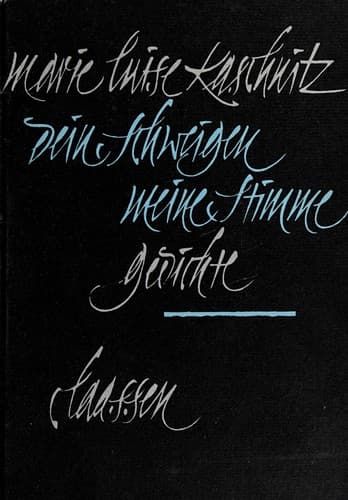 marie luise kaschnitz
dein schweigen
meine stimme
gedichte
claassen